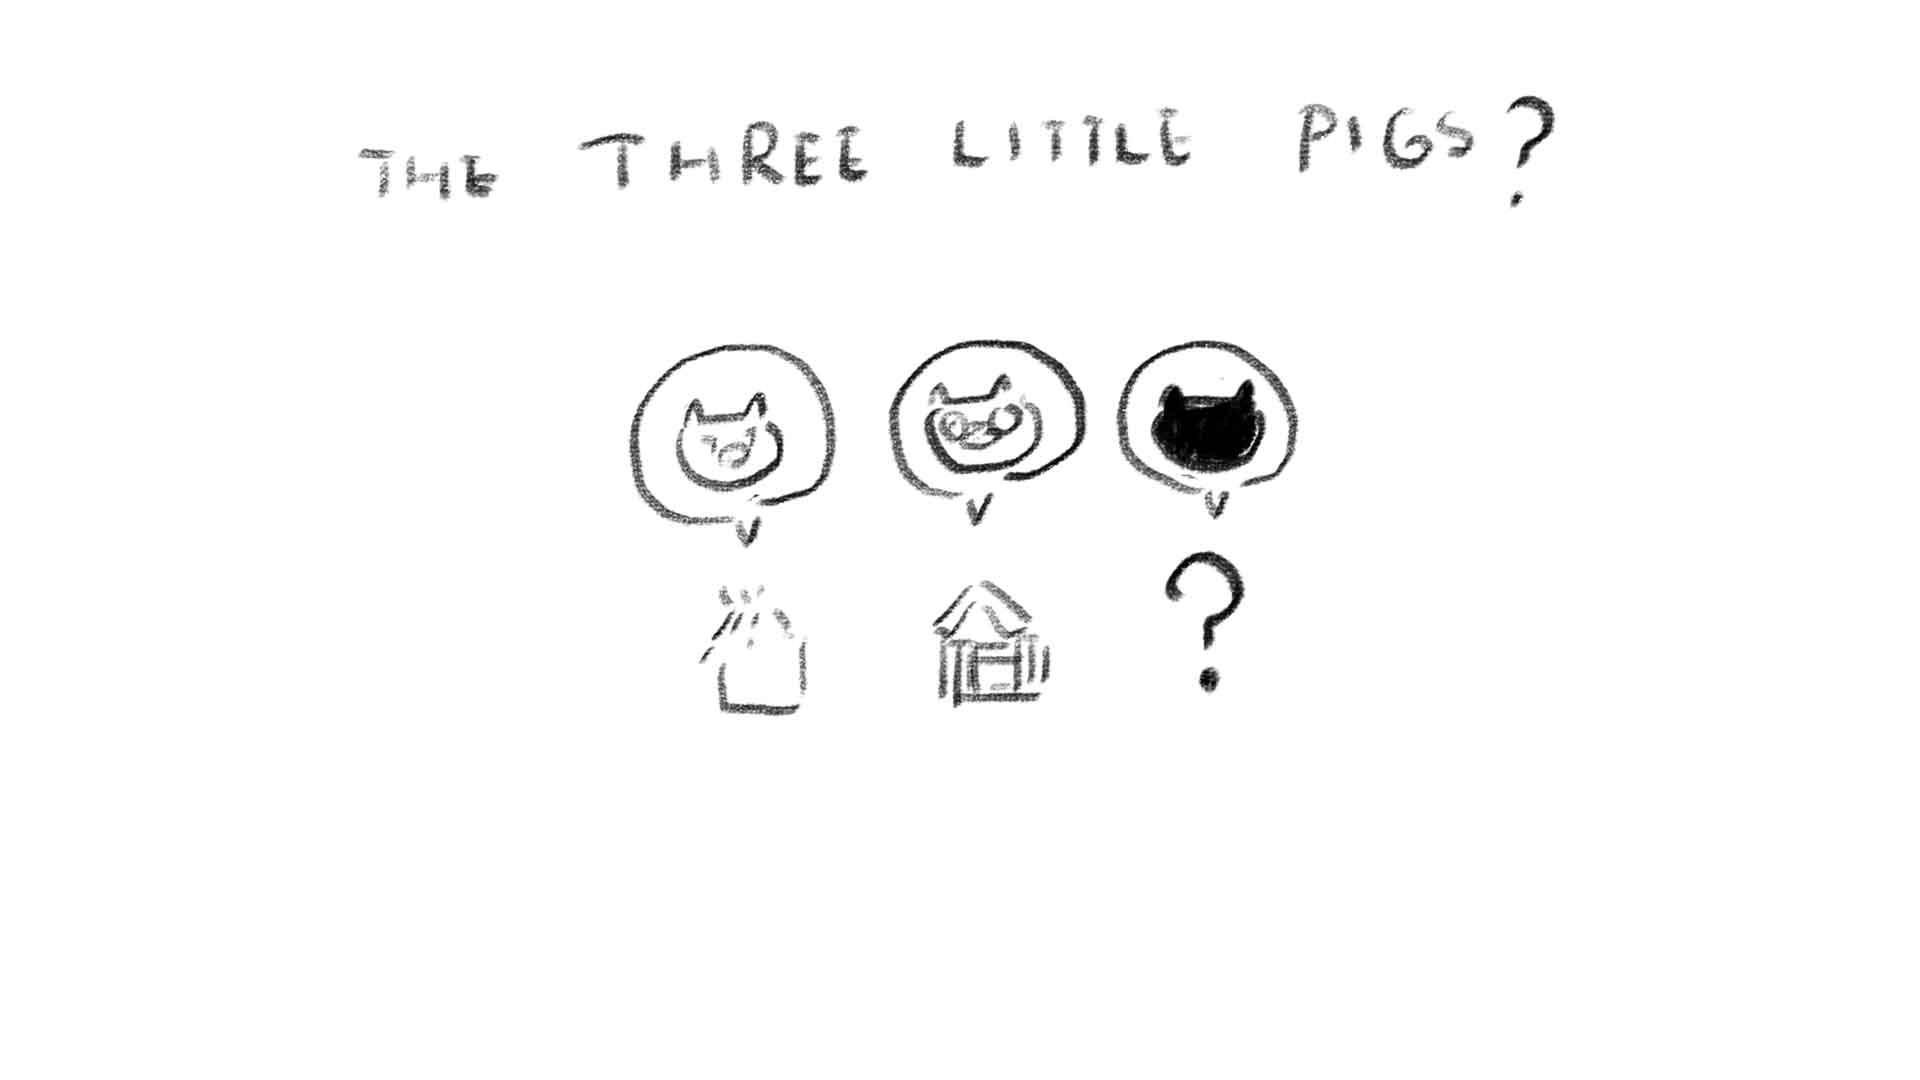 THE THREE LITTLE PIGS?
?